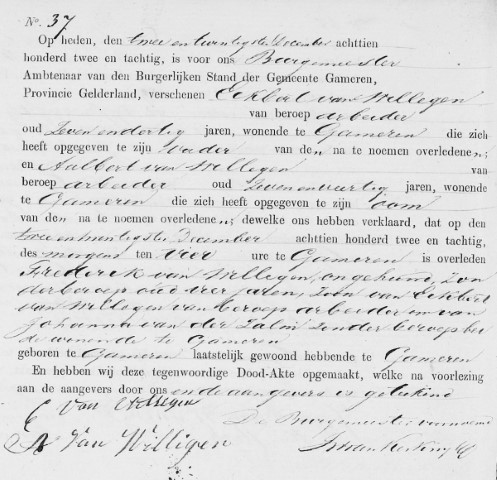 No. 37
Op heden, den twee en twintigsten December achttien
honderd twee en tachtig, is voor ons Burgemeester
Ambtenaar van den Burgerlijken Stand der Gemeente Gameren,
Provincie Gelderland, verschenen Eckbert van Willegen
van beroep arbeider
oud zeven en dertig jaren, wonende te Gameren die zich
heeft opgegeven te zijn vader van den na te noemen overledene;
en Aalbert van Willegen van
beroep arbeider oud zeven en veertig jaren, wonende
te Gameren die zich heeft opgegeven te zijn oom
van den na te noemen overledene; dewelke ons hebben verklaard, dat op den
twee en twintigsten December achttien honderd twee en tachtig,
des morgens ten vier ure te Gameren is overleden
Frederik van Willegen, ongehuwd, zon
der beroep oud vier jaren, Zoon van Eckbert
van Willegen van beroep arbeider en van
Johanna van der Zalm zonder beroep bei
de wonende te Gameren
geboren te Gameren laatstelijk gewoond hebbende te Gameren
En hebben wij deze tegenwoordige Dood-Akte opgemaakt, welke na voorlezing
aan de aangevers door ons en de aangevers is getekend
E Van Willegen
De Burgemeester voornoemd
A Van Willigen